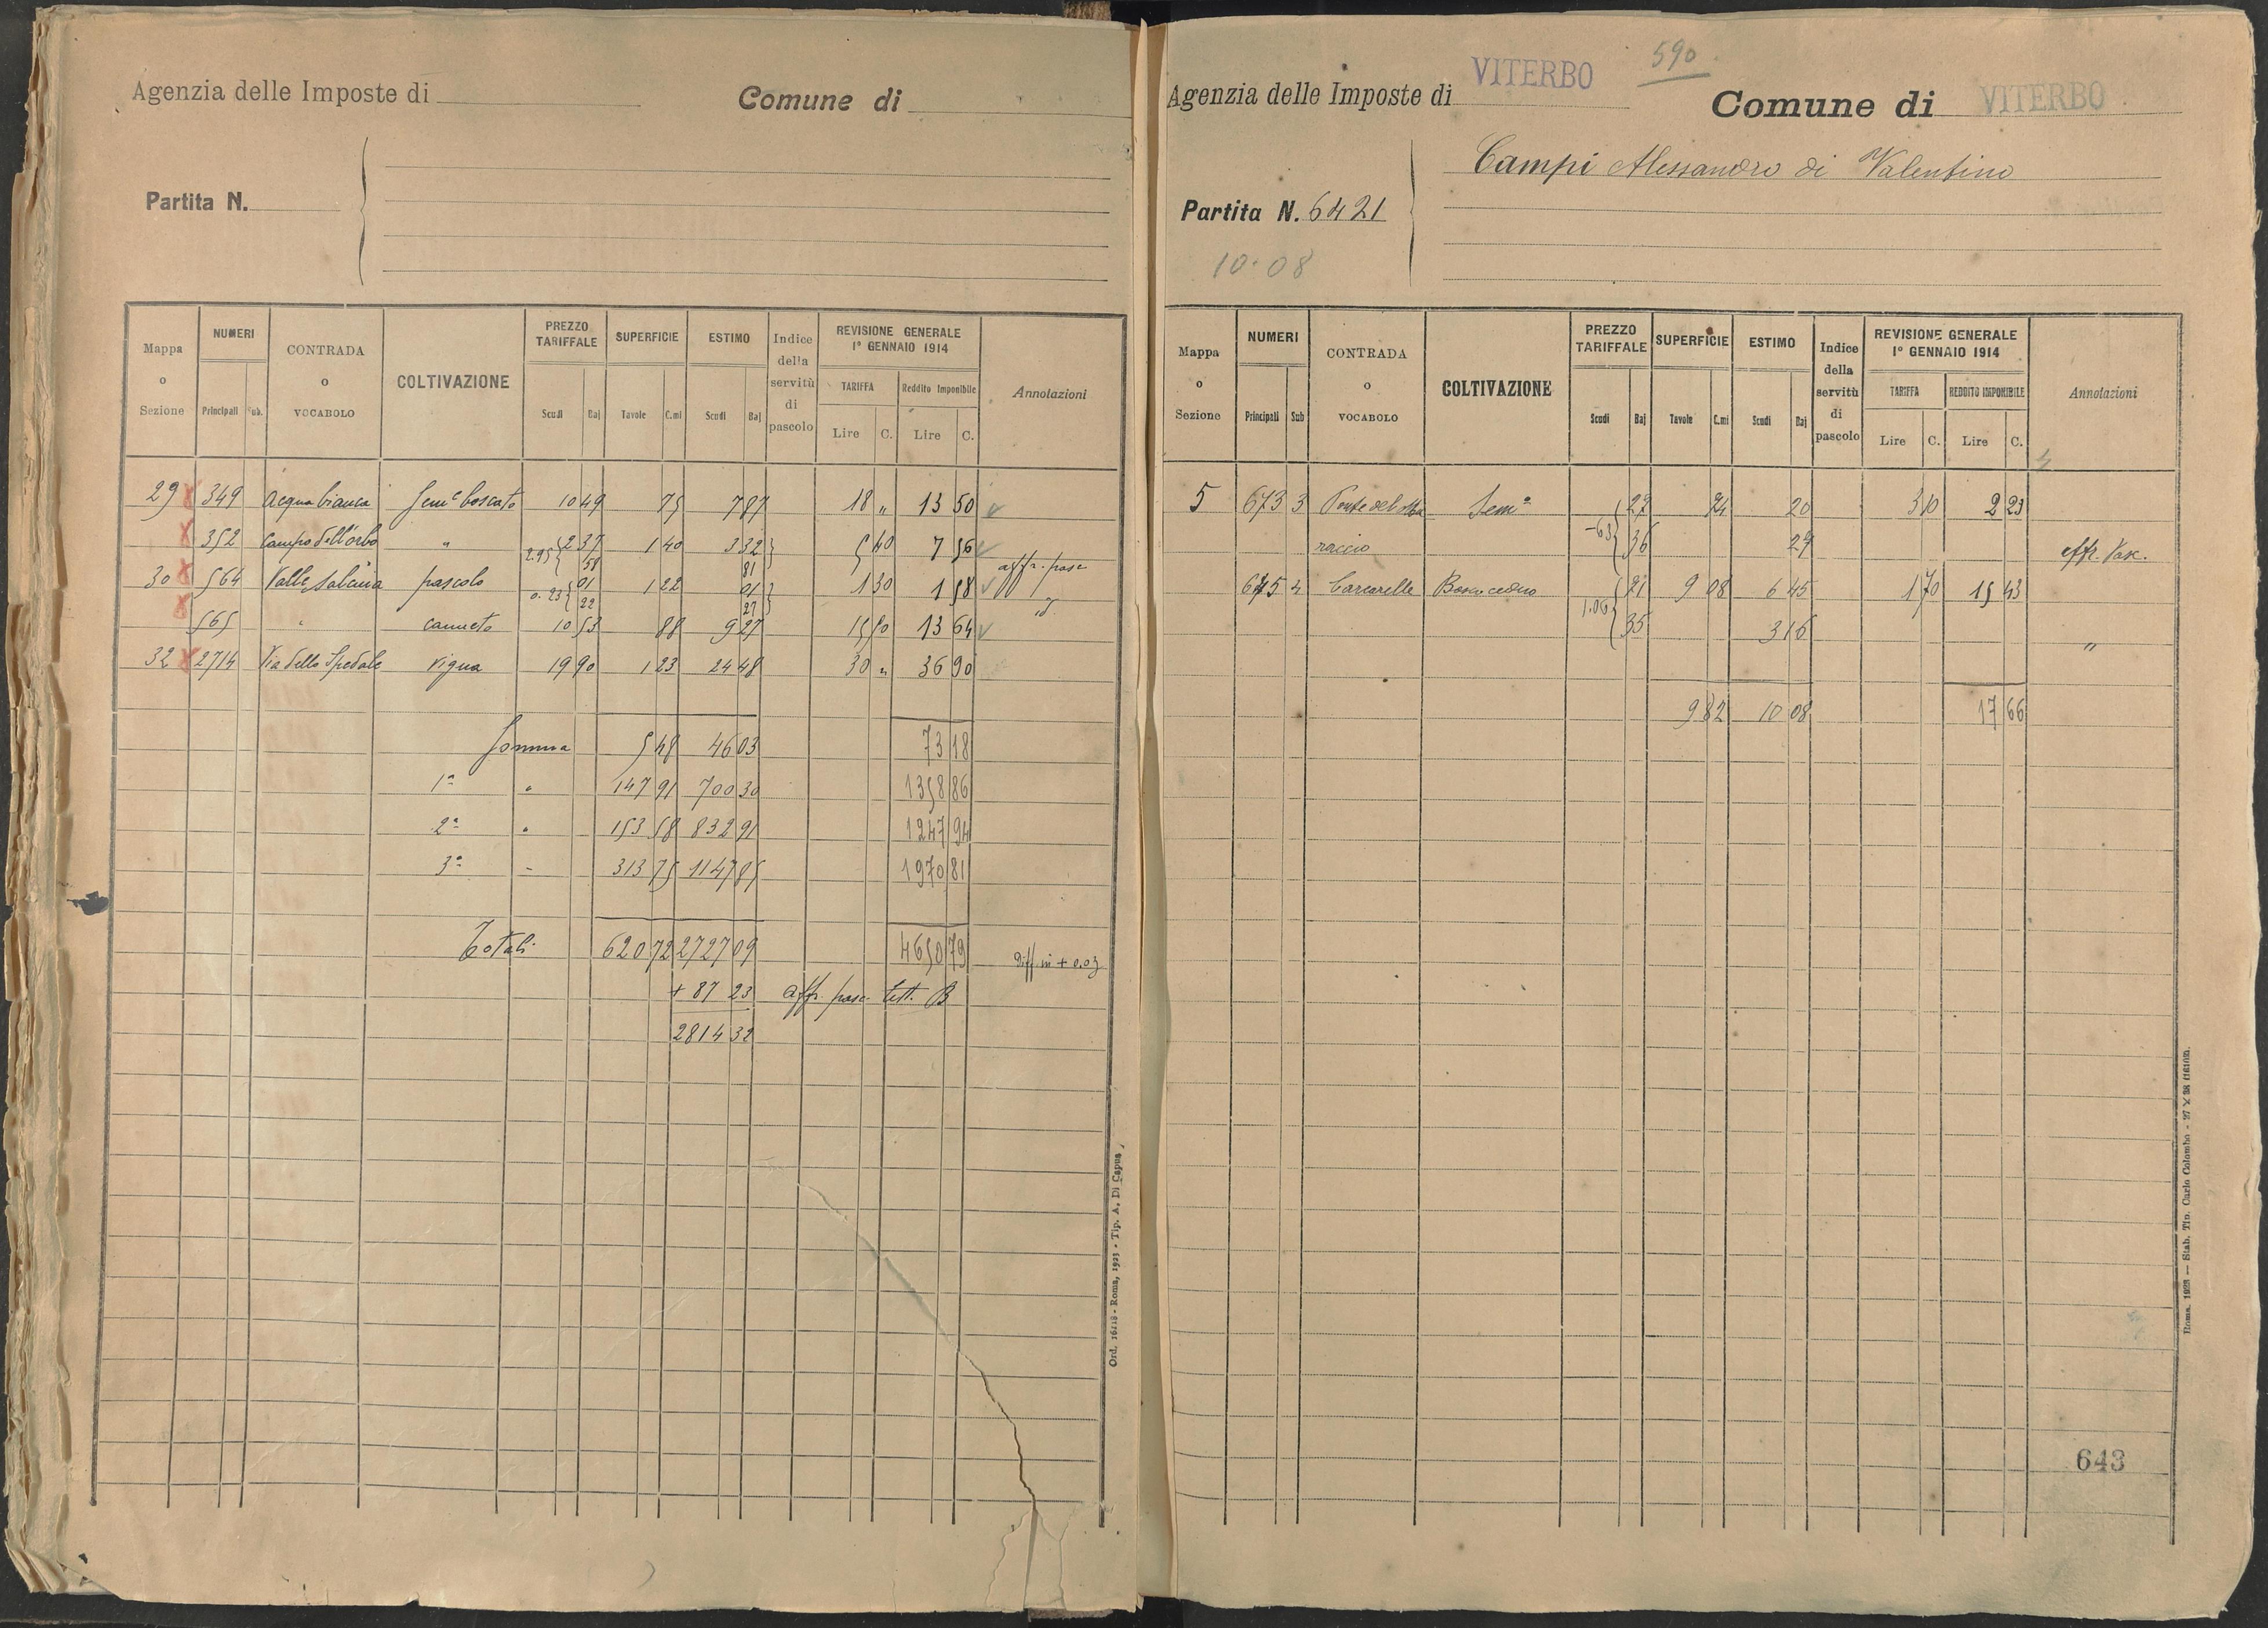 Agenzia delle Imposte di
Comune di
Partita N.
Mappa o Sezione
NUMERI
Principali
Sub.
CONTRADA o VOCABOLO
COLTIVAZIONE
PREZZO TARIFFALE
Scudi
Baj
SUPERFICIE
Tavole
C.mi
ESTIMO
Scudi
Baj
Indice della servitù di pascolo
REVISIONE GENERALE
1° GENNAIO 1914
TARIFFA
Reddito Imponibile
Lire
C.
Lire
C.
Annotazioni
29 349 Acqua bianca Sem.e boscato 10 49 75 7 87 18 „ 13 50
352 Campo dell'orbo „ 2.95 2 37 1 40 3 32 5 40 7 56
58 81 affr. pasc
30 564 Valle Salcina pascolo 0.23 01 1 22 01 1 30 1 58
22 27
565 „ canneto 10 53 88 9 27 15 50 13 64
32 2714 Via dello Spedale vigna 19 90 1 23 24 48 30 „ 36 90
Somma 5 48 46 03 73 18
1ª „ 147 91 700 30 1358 86
2ª „ 153 58 832 91 1247 94
3ª „ 313 75 1147 85 1970 81
Totali 620 72 2727 09 4650 79 Diff. in + 0.03
+ 87 23 affr. pasc. lett. B
2814 32
Ord. 16218 - Roma, 1923 - Tip. A. Di Capua
590
Agenzia delle Imposte di VITERBO
Comune di VITERBO
Campi Alessandro di Valentino
Partita N. 6421
10.08
Mappa o Sezione
NUMERI
Principali
Sub
CONTRADA o VOCABOLO
COLTIVAZIONE
PREZZO TARIFFALE
Scudi
Baj
SUPERFICIE
Tavole
C.mi
ESTIMO
Scudi
Baj
Indice della servitù di pascolo
REVISIONE GENERALE
1° GENNAIO 1914
TARIFFA
REDDITO IMPONIBILE
Lire
C.
Lire
C.
Annotazioni
5 673 3 Ponte del Sem.o 27 74 20 3 10 2 23
raccio -63 36 27 affr. Pasc.
675 Carcarelle Bosco ceduo 71 9 08 6 45 1 70 15 43
1.06 35 3 16 „
9 82 10 08 17 66
643
Roma, 1923 — Stab. Tip. Carlo Colombo - 27 X 38 (16103).